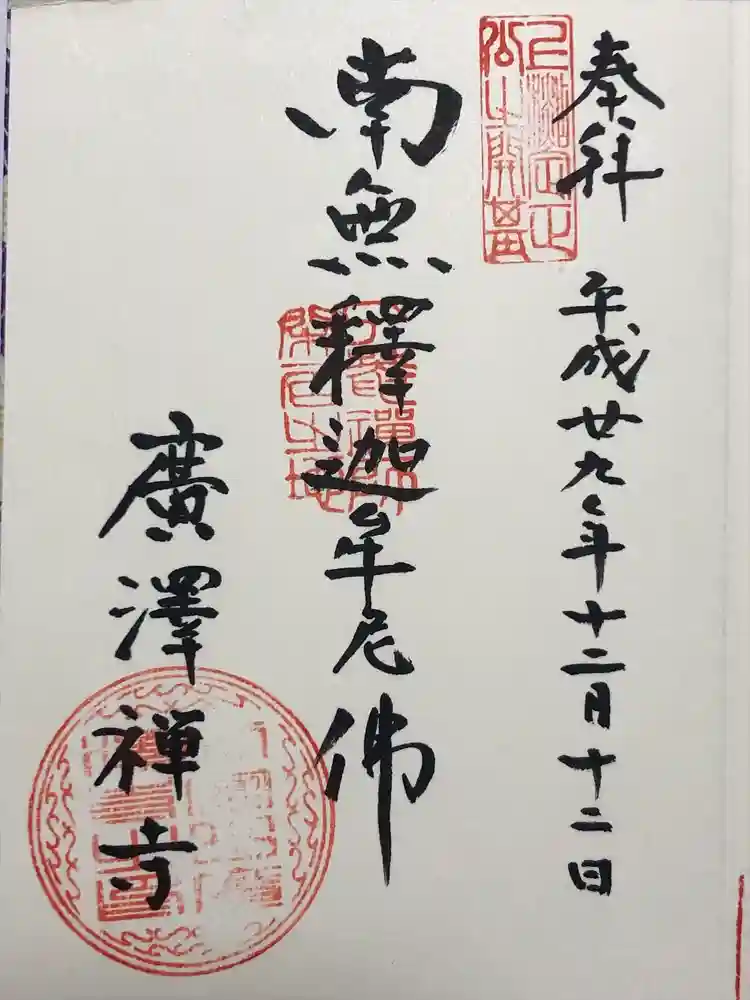 奉拜 平成廿九年十二月十二日
南無釋迦牟尼佛
廣澤禅寺